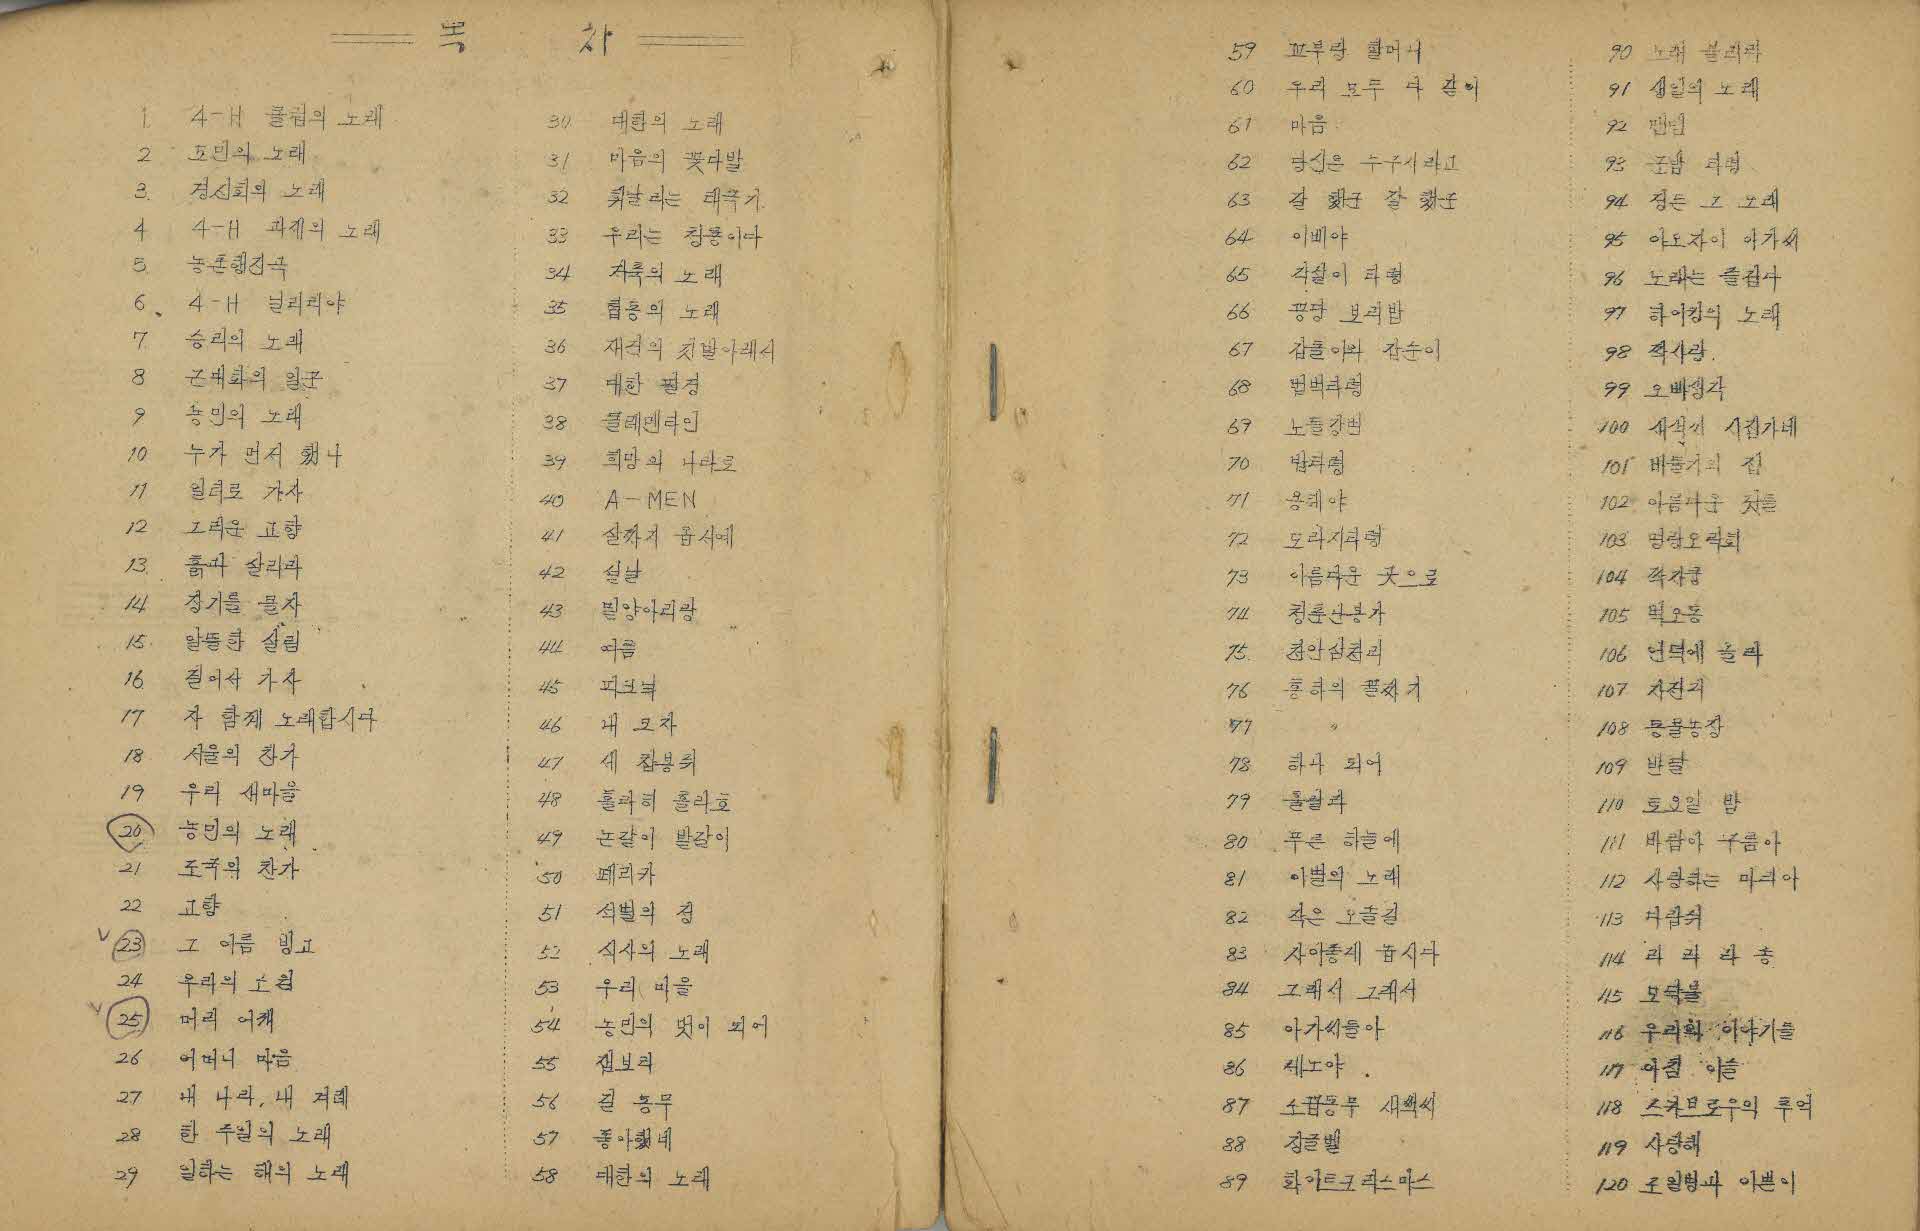 목 차
1. 4-H 클럽의 노래
2 프민의 노래
3. 경신회의 노래
4 4-H 과제의 노래
5. 농촌행진곡
6. 4-H 닐리리야
7. 승리의 노래
8 근대화의 일군
9 농민의 노래
10 누가 먼저 했나
11 일터로 가자
12 그리운 고향
13. 흙과 살리라
14 쟁기를 몰자
15. 알뜰한 살림
16. 질어서 가자
17 자 함께 노래합시다
18 서울의 찬가
19 우리 새마을
20 농민의 노래
21 조국의 찬가
22 고향
23 그 이름 빙고
24 우리의 소원
25 머리 어깨
26 어머니 마음
27 내 나라, 내 겨레
28 한 주일의 노래
29 일하는 해의 노래
30 대한의 노래
31 마음의 꽃다발
32 휘날리는 태극기
33 우리는 청룡이다
34 저축의 노래
35 협동의 노래
36 재건의 깃발아래서
37 대한 팔경
38 클레멘타인
39 희망의 나라로
40 A-MEN
41 살짜기 옵서예
42 설날
43 밀양아리랑
44 여름
45 피크닉
46 내 모자
47 세 잡봉쥐
48 홀라히 홀라호
49 논갈이 밭갈이
50 페리카
51 석별의 정
52 식사의 노래
53 우리 마을
54 농민의 벗이 되어
55 잼보리
56 길 동무
57 좋아했네
58 대한의 노래
59 꼬부랑 할머니
60 우리 모두 다 같이
61 마음
62 당신은 누구시라고
63 잘 했군 잘 했군
64 이뻐야
65 각설이 타령
66 꽁당 보리밥
67 갑돌이와 갑순이
68 범벅타령
69 노들강변
70 밤타령
71 옹헤야
72 도라지타령
73 아름다운 곳으로
74 청룬산봉가
75. 천안삼천리
76 홍하의 골짜기
77 〃
78 하나 되어
79 훌랄라
80 푸른 하늘에
81 이별의 노래
82 작은 오솔길
83 사이좋게 놉시다
84 그래서 그래서
85 아가씨들아
86 세노야
87 소꼽동무 새색씨
88 징글벨
89 화이트크리스마스
90 노래 불리라
91 생일의 노래
92 맨번
93 군밤 타령
94 정든 그 노래
95 아도자이 아가씨
96 노래는 즐겁다
97 하이킹의 노래
98 짝사랑.
99 오빠생각
100 새색시 시집가네
101 비둘기의 집
102 아름다운 것들
103 명랑오락회
104 짝자쿵
105 벽오동
106 언덕에 올라
107 자전거
108 동물농장
109 반달
110 토요일 밤
111 바람아 구름아
112 사랑하는 마리아
113 다람쥐
114 라 라 라 송
115 모닥불
116 우리의 이야기들
117 아침 이슬
118 스카브로우의 추억
119 사랑해
120 조일병과 이쁜이